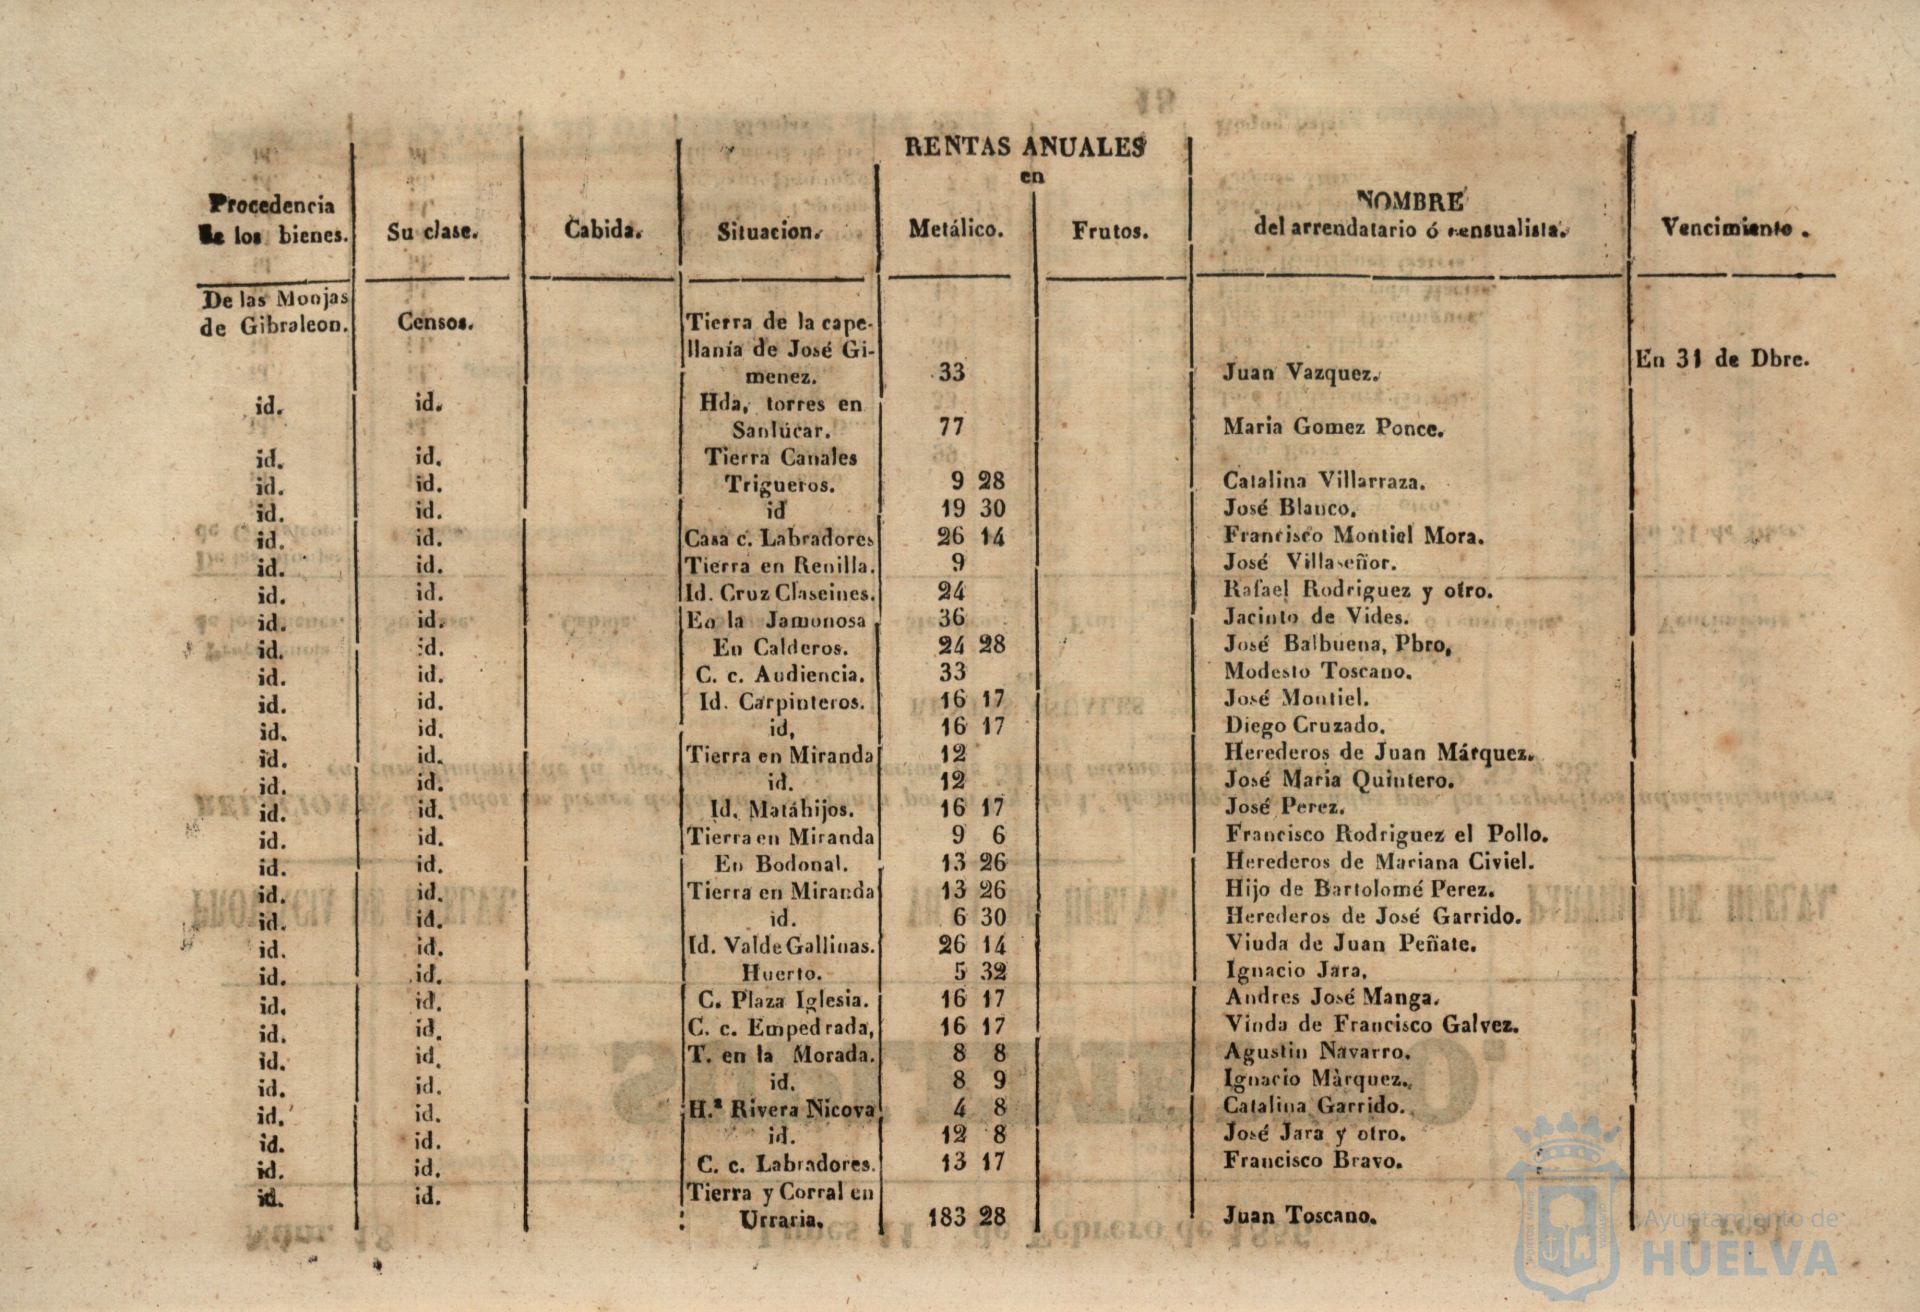 RENTAS ANUALES
en
Procedencia de los bienes. Su clase. Cabida. Situacion. Metálico. Frutos. NOMBRE del arrendatario ó censualista. Vencimiento.
De las Monjas
de Gibraleon. Censos. Tierra de la cape-
llanía de José Gi-
menez. 33 Juan Vazquez. En 31 de Dbre.
id. id. Hda, torres en
Sanlúcar. 77 Maria Gomez Ponce.
id. id. Tierra Canales
id. id. Trigueros. 9 28 Catalina Villarraza.
id. id. id 19 30 José Blanco.
id. id. Casa c. Labradores 26 14 Francisco Montiel Mora.
id. id. Tierra en Renilla. 9 José Villaseñor.
id. id. Id. Cruz Claseines. 24 Rafael Rodriguez y otro.
id. id. En la Jamonosa 36 Jacinto de Vides.
id. id. En Calderos. 24 28 José Balbuena, Pbro,
id. id. C. c. Audiencia. 33 Modesto Toscano.
id. id. Id. Carpinteros. 16 17 José Montiel.
id. id. id, 16 17 Diego Cruzado.
id. id. Tierra en Miranda 12 Herederos de Juan Márquez.
id. id. id. 12 José Maria Quintero.
id. id. Id. Matáhijos. 16 17 José Perez.
id. id. Tierra en Miranda 9 6 Francisco Rodriguez el Pollo.
id. id. En Bodonal. 13 26 Herederos de Mariana Civiel.
id. id. Tierra en Miranda 13 26 Hijo de Bartolomé Perez.
id. id. id. 6 30 Herederos de José Garrido.
id. id. Id. Valde Gallinas. 26 14 Viuda de Juan Peñate.
id. id. Huerto. 5 32 Ignacio Jara,
id. id. C. Plaza Iglesia. 16 17 Andres José Manga.
id. id. C. c. Empedrada, 16 17 Vinda de Francisco Galvez.
id. id. T. en la Morada. 8 8 Agustin Navarro.
id. id. id. 8 9 Ignacio Màrquez.
id. id. H.ª Rivera Nicova 4 8 Catalina Garrido.
id. id. id. 12 8 José Jara y otro.
id. id. C. c. Labradores. 13 17 Francisco Bravo.
id. id. Tierra y Corral en
Urraria. 183 28 Juan Toscano.
Ayuntamiento de
HUELVA